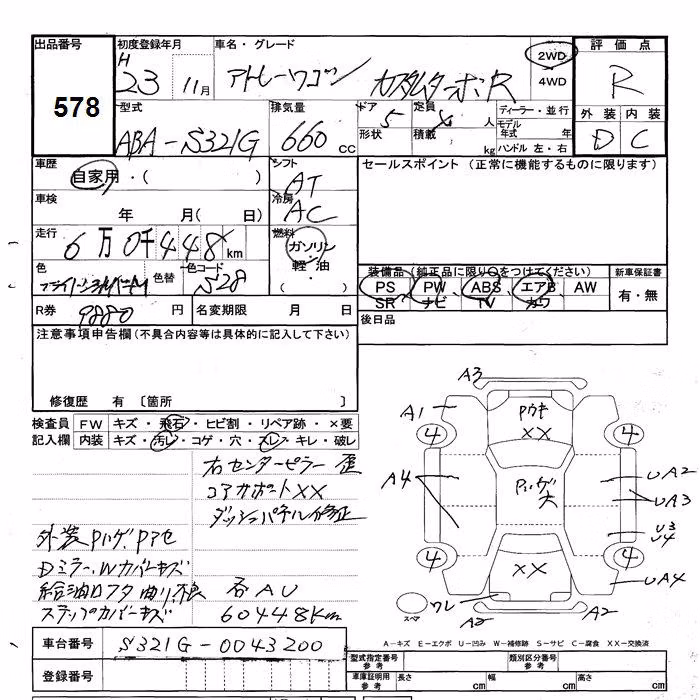 出品番号 初度登録年月 車名・グレード 2WD 評価点
578 H 23 11月 アトレーワゴン カスタムターボR 4WD R
型式 排気量 ドア 定員 ディーラー・並行 外装 内装
ABA-S321G 660 cc 5 4 人 モデル年式 年 D C
形状 積載 kg ハンドル 左・右
車歴 シフト セールスポイント (正常に機能するものに限ります)
自家用・( ) AT
車検 冷房
年 月( 日) AC
走行 燃料
6万0千448km ガソリン
軽油
・
色 色替 色コード 装備品(純正品に限り○をつけてください) 新車保証書
S28 PS PW ABS エアB AW 有・無
SR ナビ TV カワ
R券 9880 円 名変期限 月 日 後日品
注意事項申告欄(不具合内容等は具体的に記入して下さい)
修復歴 有 〔箇所
検査員 FW キズ・飛石・ヒビ割・リペア跡・×要
記入欄 内装 キズ・汚レ・コゲ・穴・スレ・キレ・破レ
右センターピラー歪
コアサポートXX
ダッシュパネル修正
外装
Dミラー、Wカバーキズ
給油口フタ曲リ、
ステップカバーキズ
60448km
A3
A1 XX
4 4
A4 大 UA2
UA3
U3
U4
4 XX 4
UA4
ワレ
スペア A2 A2
A-キズ E-エクボ U-凹み W-補修跡 S-サビ C-腐食 XX-交換済
車台番号 S321G-0043200
型式指定番号 類別区分番号
登録番号 車庫証明用参考 長さ cm 幅 cm 高さ cm